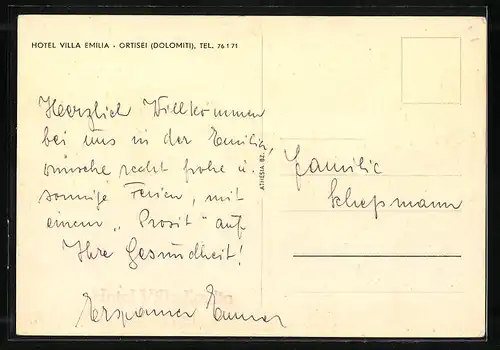 HOTEL VILLA EMILIA - ORTISEI (DOLOMITI), TEL. 76171
Herzlich Willkommen
bei uns in der Emilia,
wünsche recht frohe u.
sonnige Ferien, mit
einem „Prosit" auf
Ihre Gesundheit!
ATHESIA BZ.
Familie
Schepmann